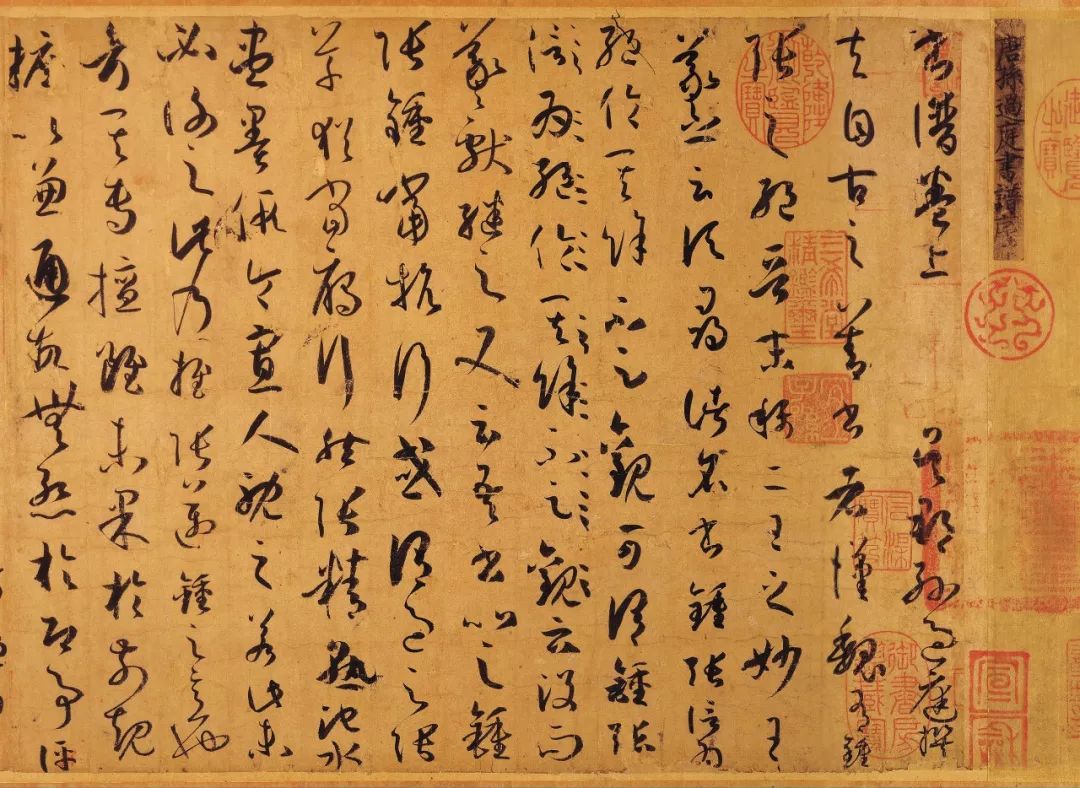 唐孫過庭書譜序
書譜卷上 吳郡孫過庭撰
夫自古之善書者漢魏有鍾
張之絕晉末稱二王之妙王
羲之云頃尋諸名書鍾張信為
絕倫其餘不足觀可謂鍾張
信為絕倫其餘不足觀云沒而
羲獻繼之又云吾書比之鍾
張鍾當抗行或謂過之張
草猶當鴈行然張精熟池水
盡墨假令寡人耽之若此未
必謝之此乃推張邁鍾之意也
考其專擅雖未果於前規
摭以兼通故無慙於即事評
三希堂精鑑璽
宜子孫
宣和